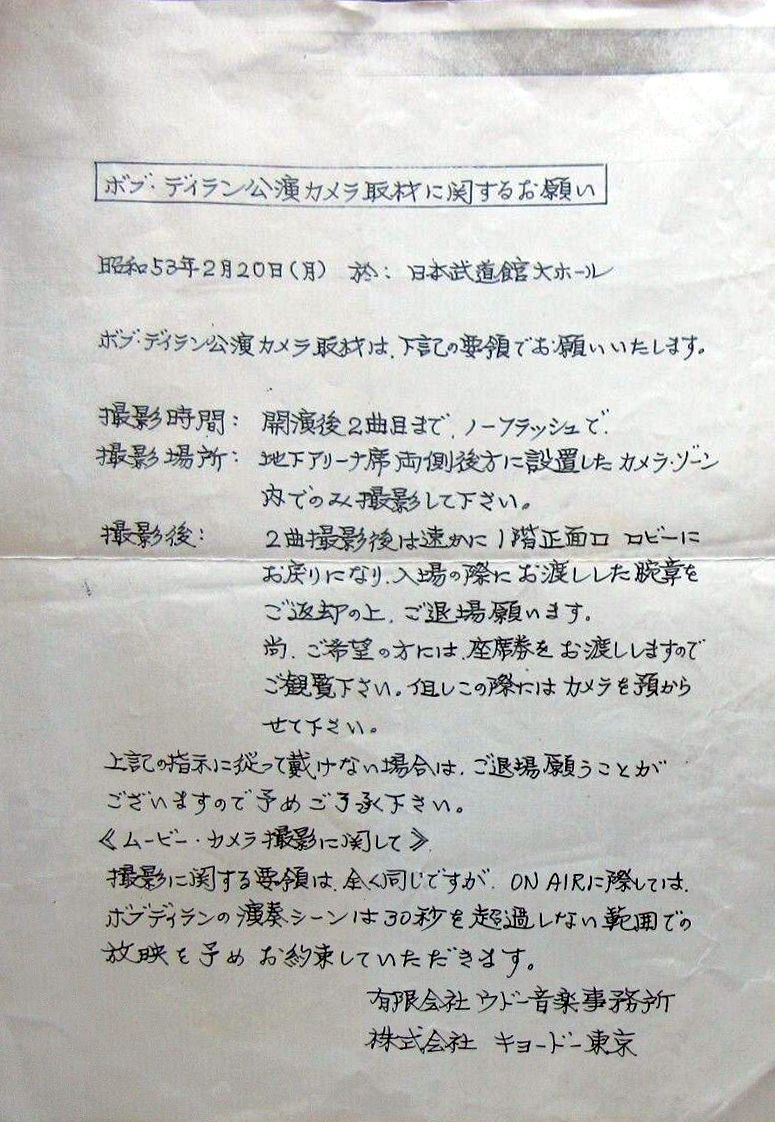 ボブ・ディラン公演カメラ取材に関するお願い
昭和53年2月20日(月) 於: 日本武道館大ホール
ボブ・ディラン公演カメラ取材は、下記の要領でお願いいたします。
撮影時間: 開演後2曲目まで、ノーフラッシュで.
撮影場所: 地下アリーナ席両側後方に設置したカメラ・ゾーン
内でのみ撮影して下さい。
撮影後: 2曲撮影後は速かに1階正面口 ロビーに
お戻りになり、入場の際にお渡しした腕章を
ご返却の上、ご退場願います。
尚、ご希望の方には、座席券をお渡ししますので
ご観覧下さい。但しこの際にはカメラを預から
せて下さい。
上記の指示に従って戴けない場合は、ご退場願うことが
ございますので予めご了承下さい。
《ムービー・カメラ撮影に関して》
撮影に関する要領は、全く同じですが、ON AIRに際しては、
ボブディランの演奏シーンは30秒を超過しない範囲での
放映を予めお約束していただきます。
有限会社ウドー音楽事務所
株式会社 キョードー東京